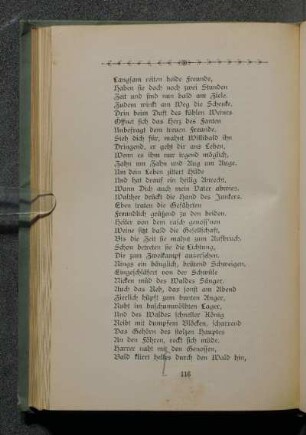 Langsam reiten beide Freunde,
Haben sie doch noch zwei Stunden
Zeit und sind nun bald am Ziele.
Zudem winkt am Weg die Schenke,
Drin beim Duft des kühlen Weines
Öffnet sich das Herz des Fanten
Unbefragt dem treuen Freunde.
Sieh dich für, mahnt Willibald ihn
Dringend, er geht dir ans Leben,
Wenn es ihm nur irgend möglich,
Zahn um Zahn und Aug um Auge.
Um dein Leben zittert Hilde
Und hat drauf ein heilig Anrecht.
Wenn Dich auch mein Vater
Walther drückt die Hand des Junkers.
Eben traten die Gefährten
Freundlich grüßend zu den beiden.
Heiter von dem rasch genossnen
Weine sitzt bald die Gesellschaft,
Bis die Zeit sie mahnt zum Aufbruch.
Schon betreten sie die Lichtung,
Die zum Zweikampf ausersehen.
Rings ein bänglich, beißend Schweigen,
Eingeschläfert von der Schwüle
Nicken müd des Waldes Sänger.
Auch das Reh, das sonst am Abend
Zierlich hüpft zum bunten Anger,
Ruht im buschumwölbten Lager,
Und des Waldes schneller König
Reibt mit dumpfem Blöcken, scharrend
Das Gehörn des stolzen Hauptes
An den Föhren, reckt sich müde.
Harrer naht mit den Genossen,
Bald klirrt helles durch den Wald hin,
116